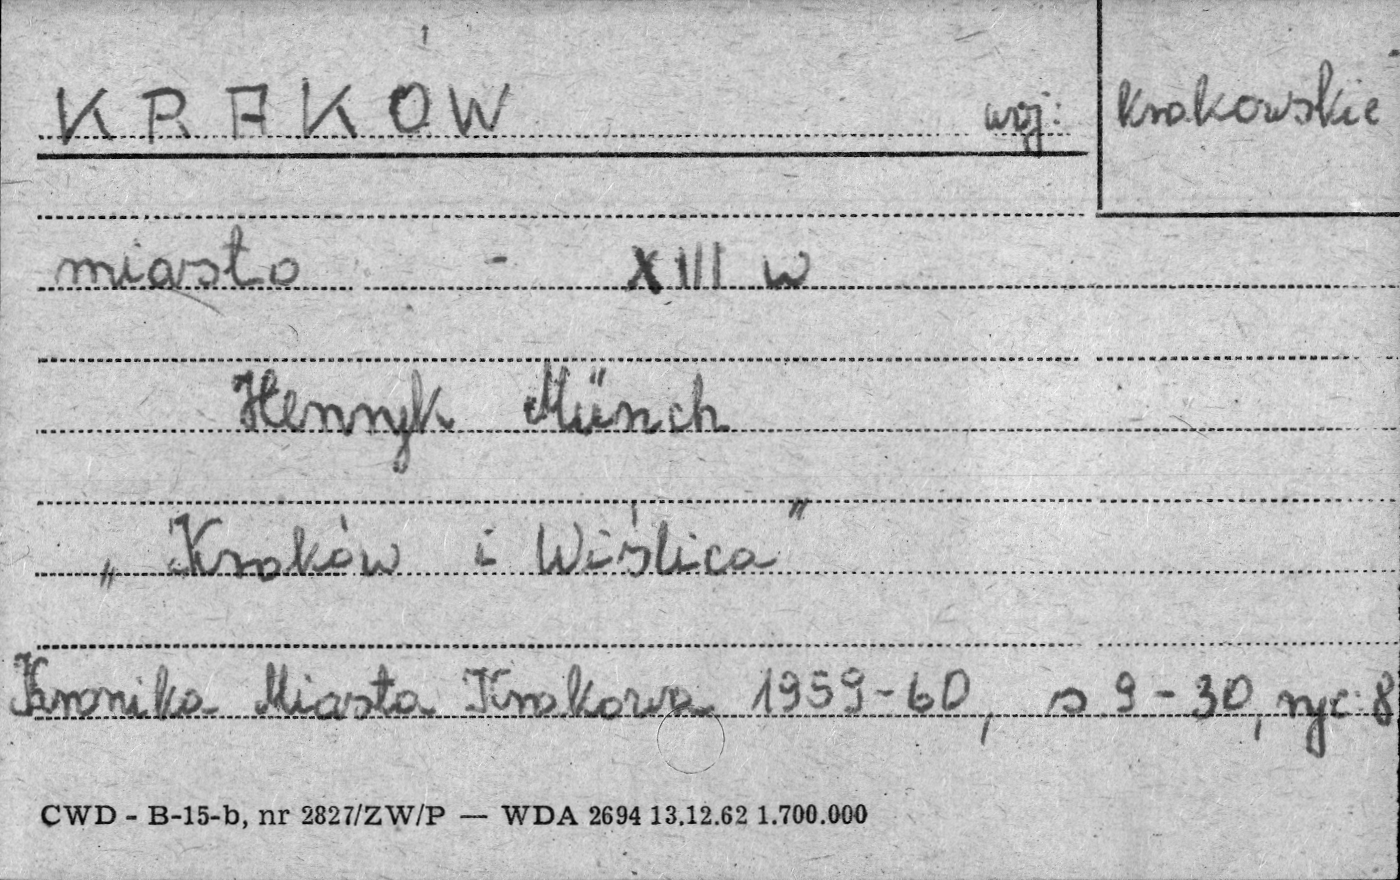 KRAKÓW woj: Krakowskie
miasto - XIII w
Henryk Münch
„Kraków i Wiślica”
Kronika Miasta Krakowa 1959-60, s 9-30, ryc: 8
CWD - B-15-b, nr 2827/ZW/P — WDA 2694 13.12.62 1.700.000